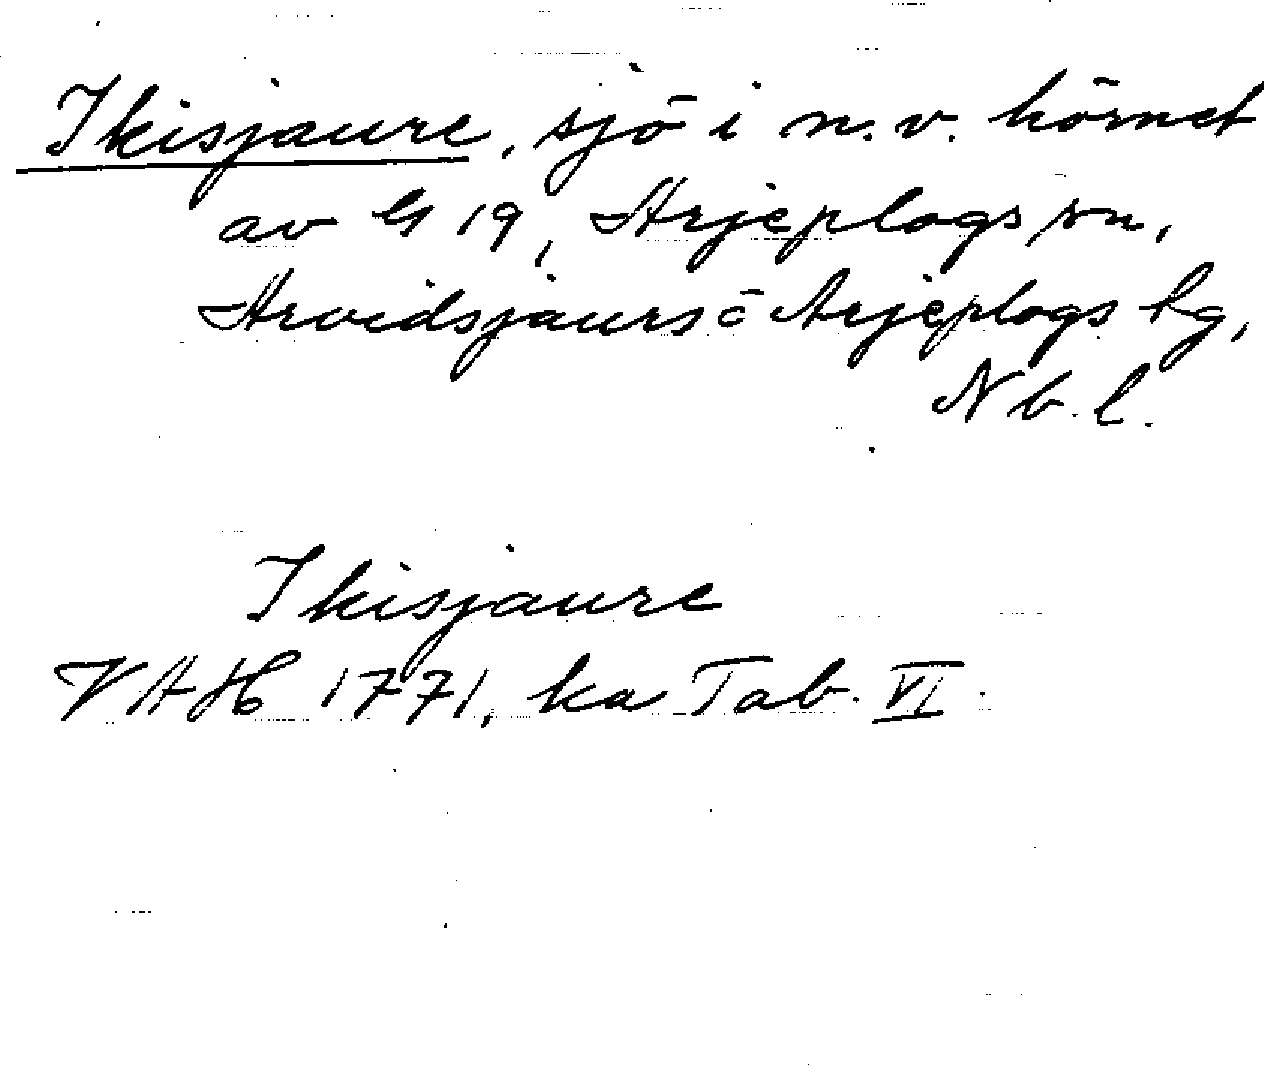 Ikisjaure, sjö i n.v. hörnet
av G 19, Arjeplogs sn,
Arvidsjaurs o Arjeplogs lg,
Nb.l.
Ikisjaure
VAH 1771, ka Tab. VI.